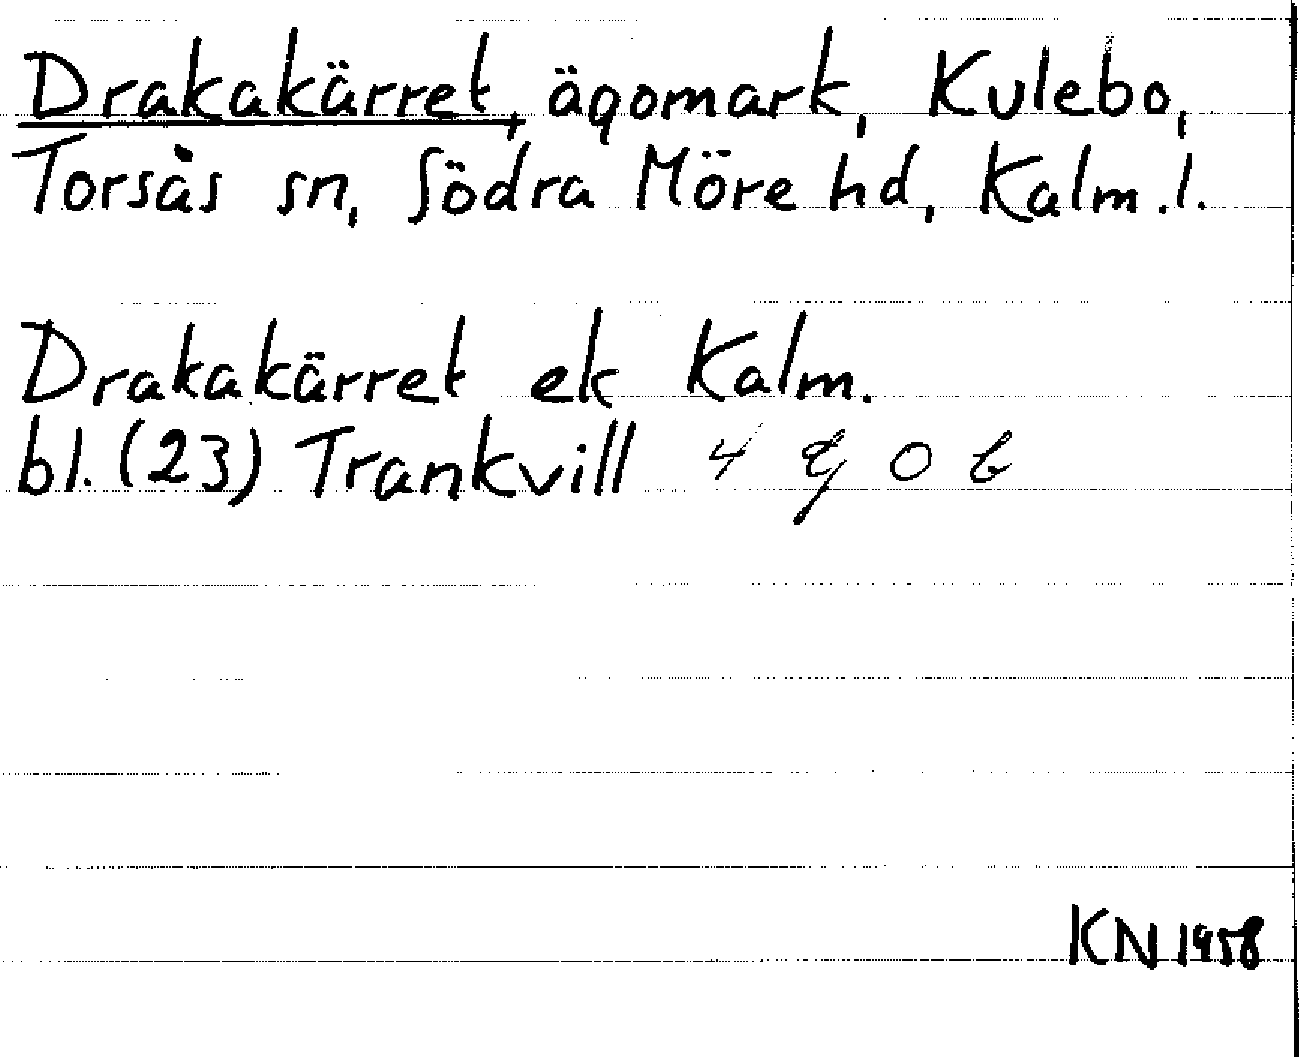 Drakakärret, ägomark, Kulebo,
Torsås sn, Södra Möre hd, Kalm.l.
Drakakärret ek Kalm.
bl. (23) Trankvill 4 g 0 b
KN 1958